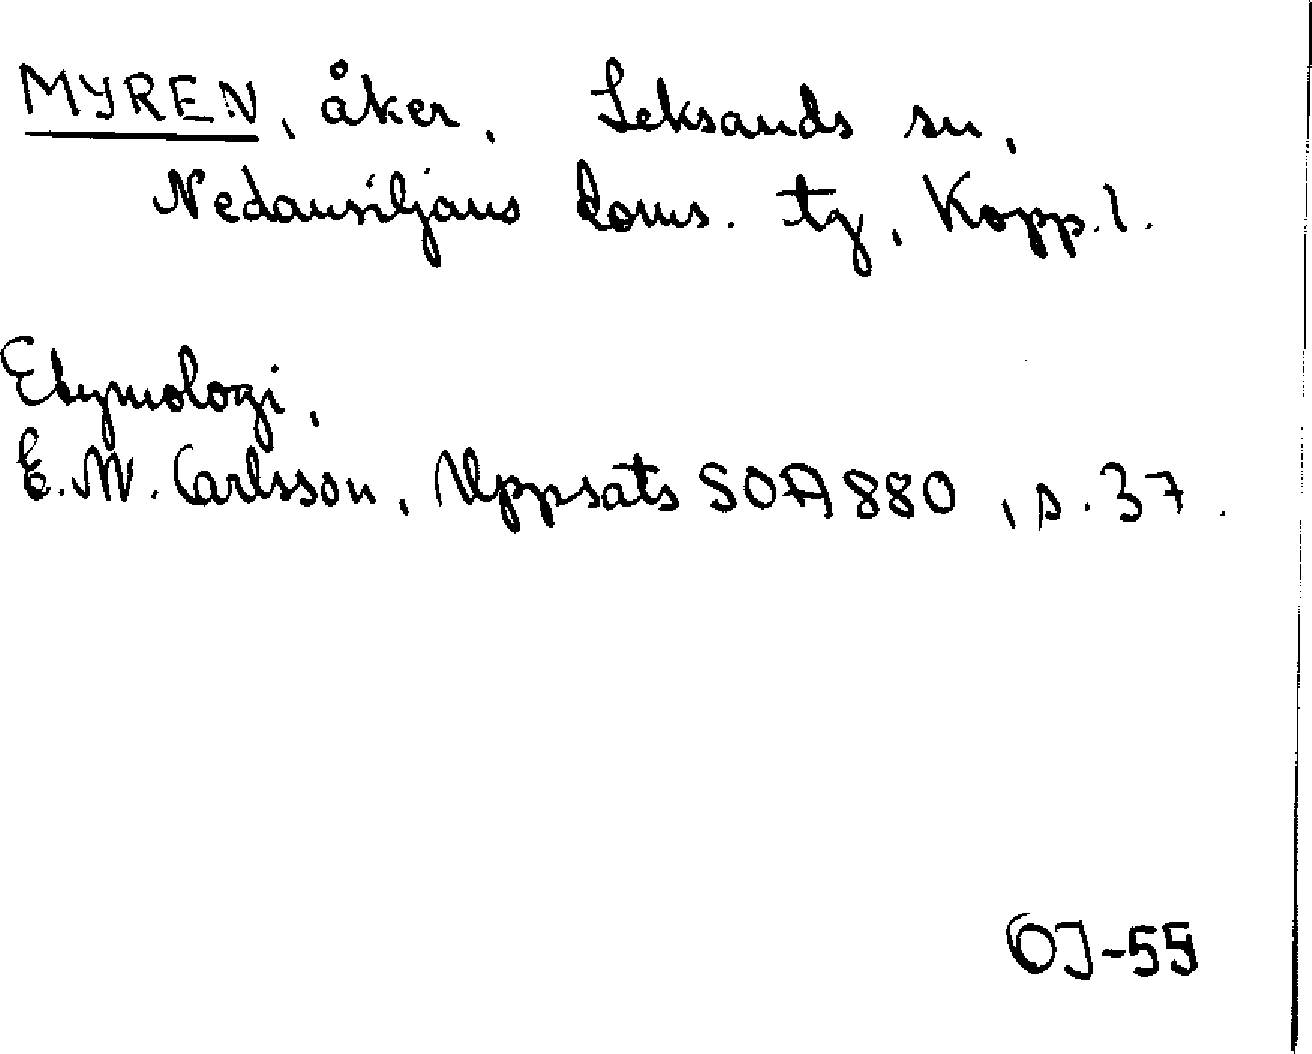 MYREN, åker. Leksands sn,
Nedansiljans doms. tg, Kopp. l.
Etymologi,
E. W. Carlsson, Uppsats SOA 880, s. 37.
OJ-55